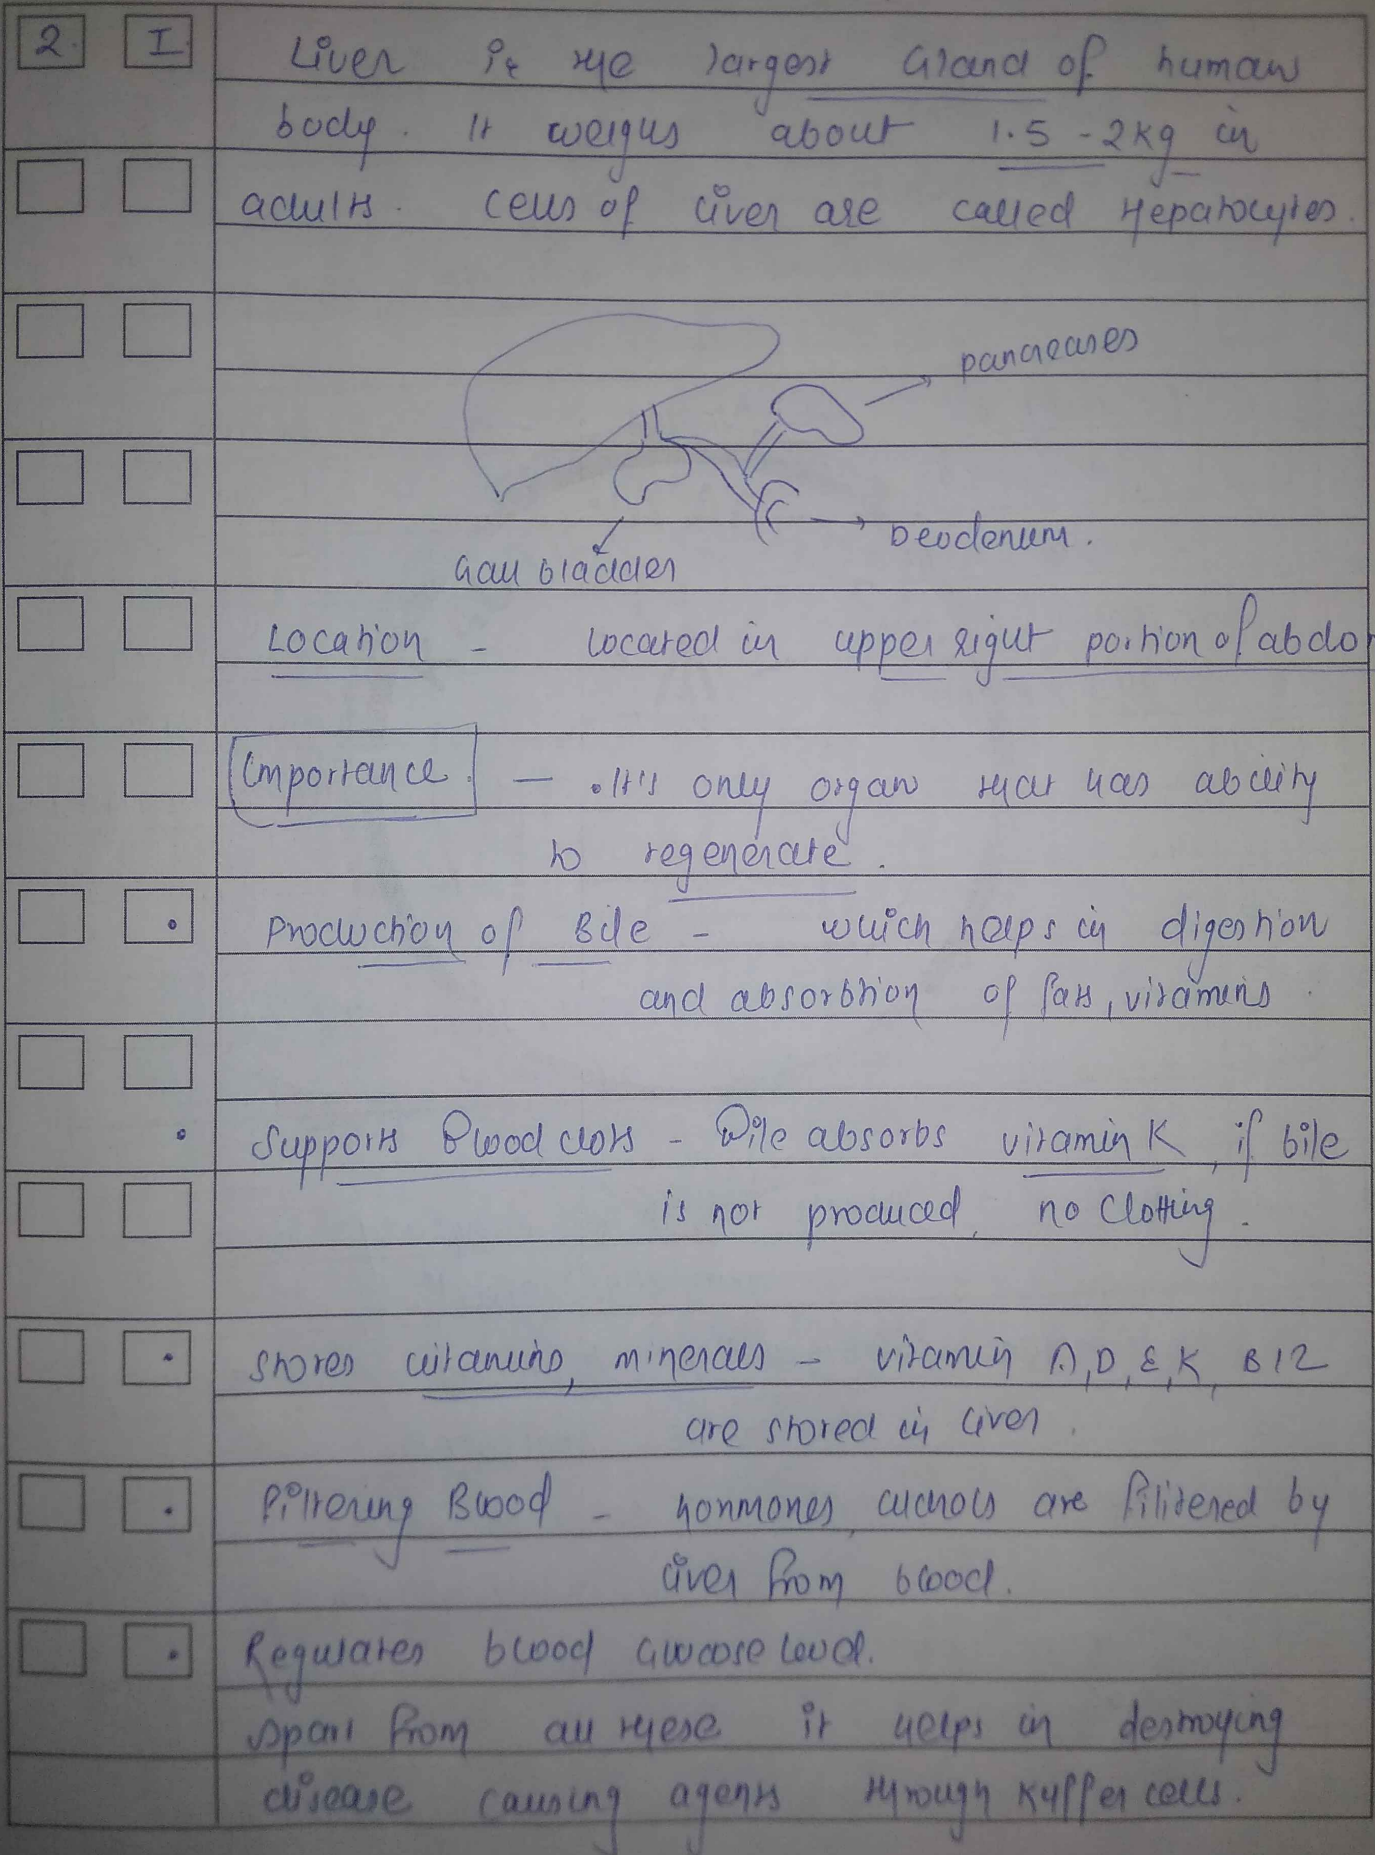 2. I. Liver is the largest Gland of human
body. It weighs about 1.5 - 2kg in
adults. Cells of liver are called Hepatocytes.
pancreases
Deodenum.
Gall bladder
Location - Located in upper right portion of abdo
Importance. - . It's only organ that has ability
to regenerate.
Production of Bile - which helps in digestion
and absorbtion of fats, vitamins.
Supports Blood clots - Bile absorbs vitamin K, if bile
is not produced, no clotting.
Stores vitamins, minerals - vitamin A, D, E, K, B12
are stored in liver.
Filtering Blood - hormones, alchols are filitered by
liver from blood.
Regulates blood Glucose level.
Apart from all these it helps in destroying
disease causing agents through Kuffer cells.